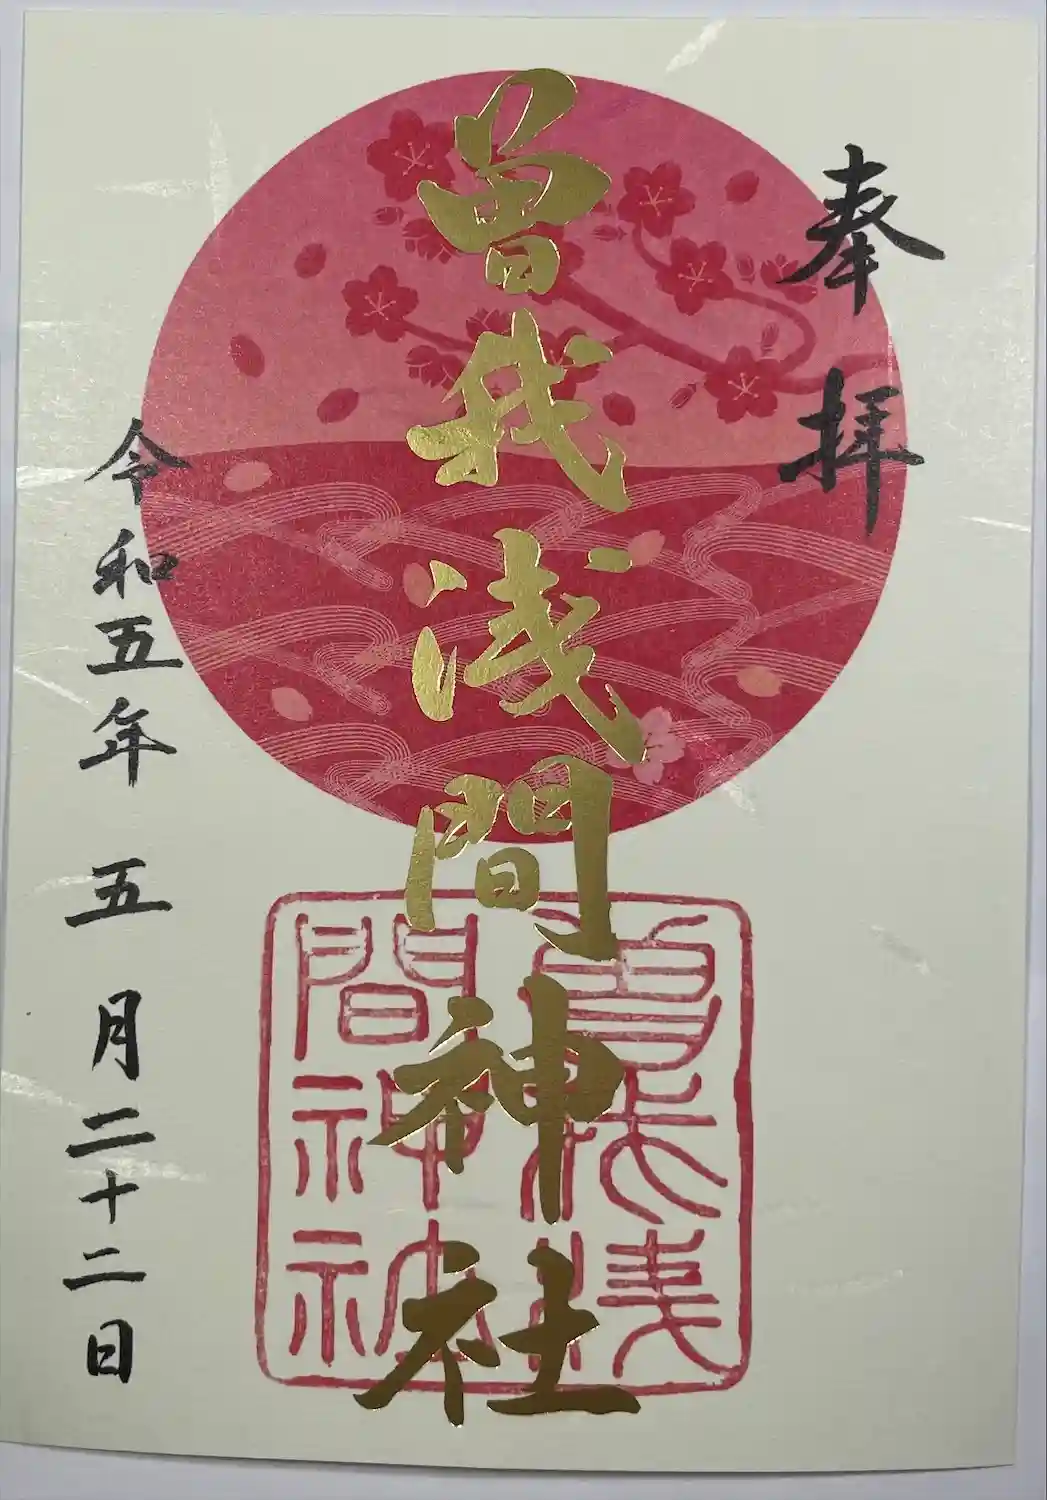 奉拝
曽我浅間神社
曽我浅
間神社
令和五年五月二十二日